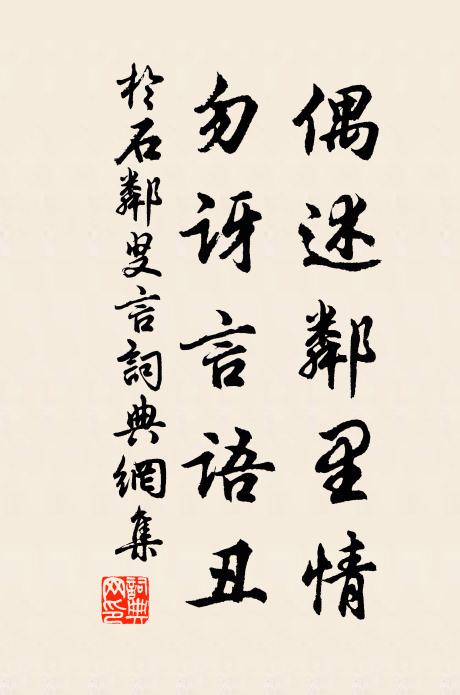 偶述鄰里情
勿訝言語丑
於石鄰叟言詞典網集
詞典網印